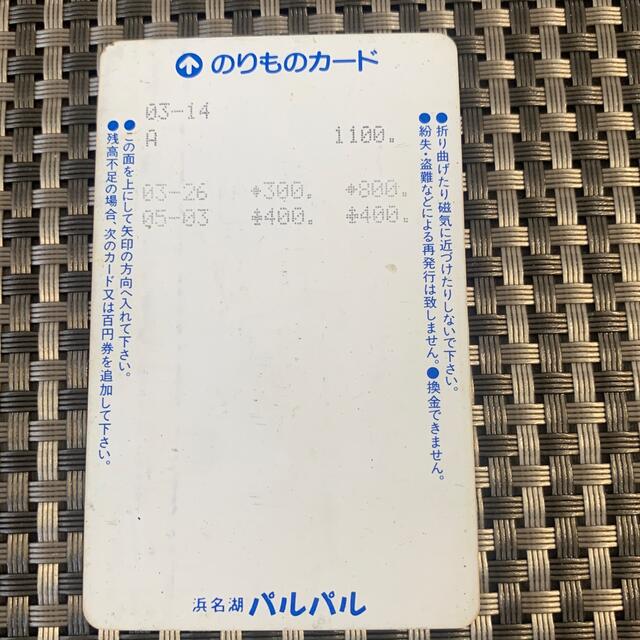 のりものカード
03-14
A 1100.
03-26 *300. *800.
05-03 *400. *400.
●折り曲げたり磁気に近づけたりしないで下さい。
●紛失・盗難などによる再発行は致しません。●換金できません。
●この面を上にして矢印の方向へ入れて下さい。
●残高不足の場合、次のカード又は百円券を追加して下さい。
浜名湖 パルパル